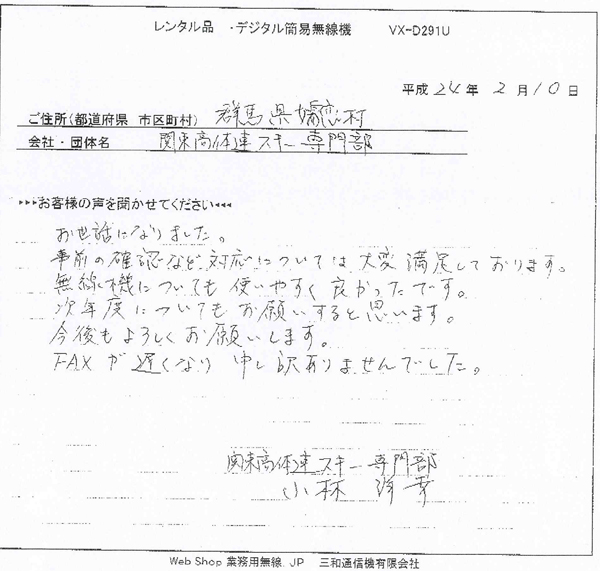 レンタル品 ・デジタル簡易無線機 VX-D291U
平成 24 年 2 月 10 日
ご住所(都道府県 市区町村) 群馬県嬬恋村
会社・団体名 関東高体連スキー専門部
▸▸▸お客様の声を聞かせてください◂◂◂
お世話になりました。
事前の確認など対応については大変満足しております。
無線機についても使いやすく良かったです。
次年度についてもお願いすると思います。
今後もよろしくお願いします。
FAXが遅くなり申し訳ありませんでした。
関東高体連スキー専門部
小林 幸
Web Shop 業務用無線.JP 三和通信機有限会社